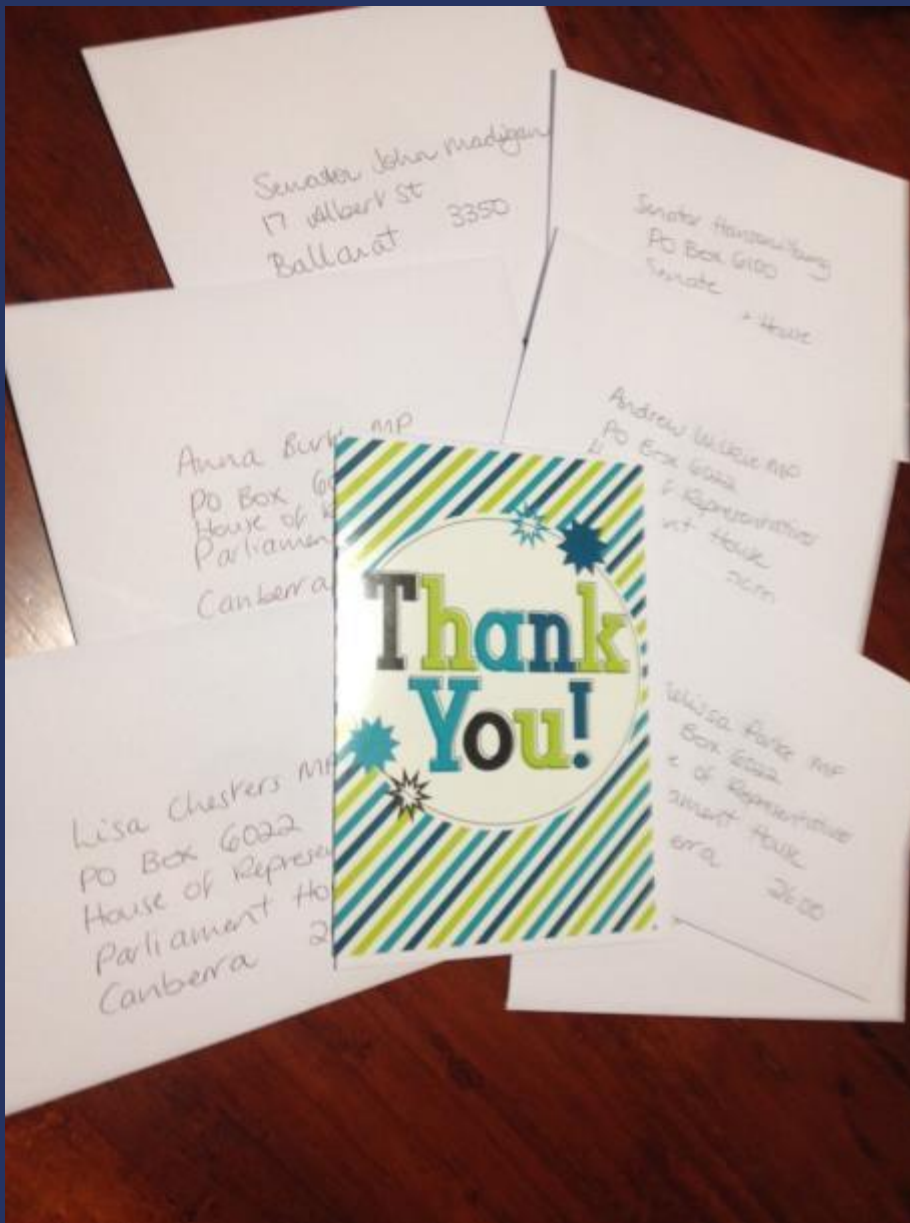 Senator John Madigan
17 Albert St
Ballarat 3350
Senator Hanson-Young
PO Box 6100
Senate
House
Anna Burke MP
PO Box
House of
Canberra
Andrew Wilkie MP
PO Box 6022
Representatives
House
Thank
You!
Lisa Chesters MP
PO Box 6022
House of
Parliament
Canberra
Melissa Parke MP
Box 6022
of Representatives
House
2600